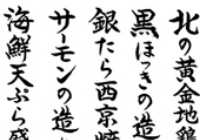 北の黄金地鶏
黒ほっきの造
銀たら西京焼
サーモンの造
海鮮天ぷら盛